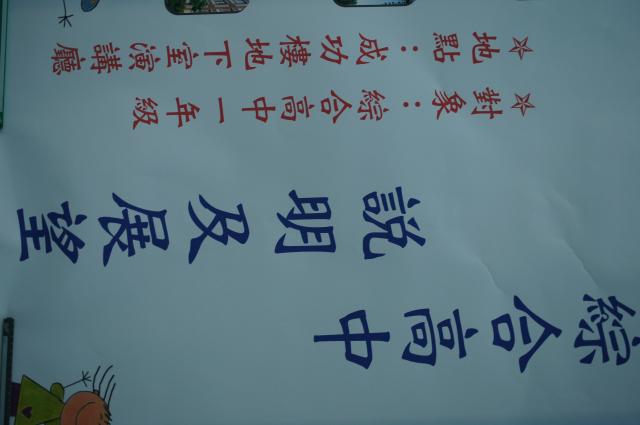 綜合高中
說明及展望
☆對象：綜合高中一年級
☆地點：成功樓地下室演講廳